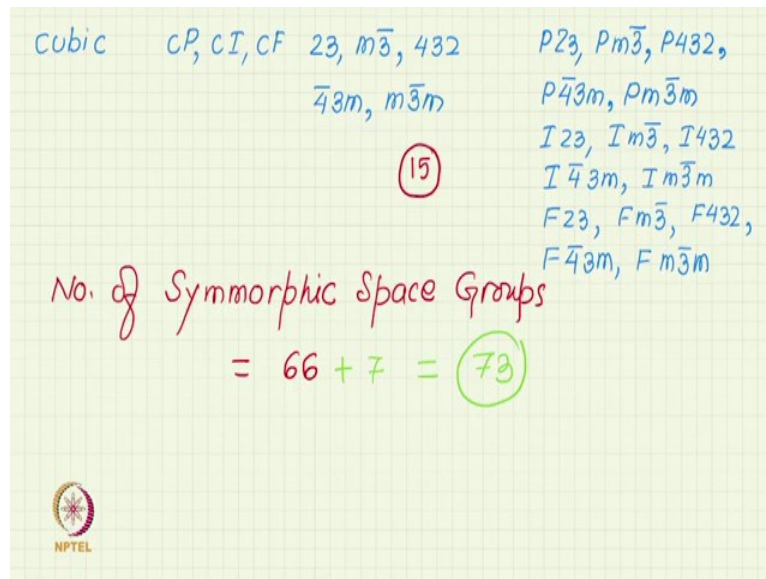 Cubic CP, CI, CF 23, m3̅, 432 P23, Pm3̅, P432,
4̅3m, m3̅m P4̅3m, Pm3̅m
I23, Im3̅, I432
15 I4̅3m, Im3̅m
F23, Fm3̅, F432,
F4̅3m, Fm3̅m
No. of Symmorphic Space Groups
= 66 + 7 = 73
NPTEL